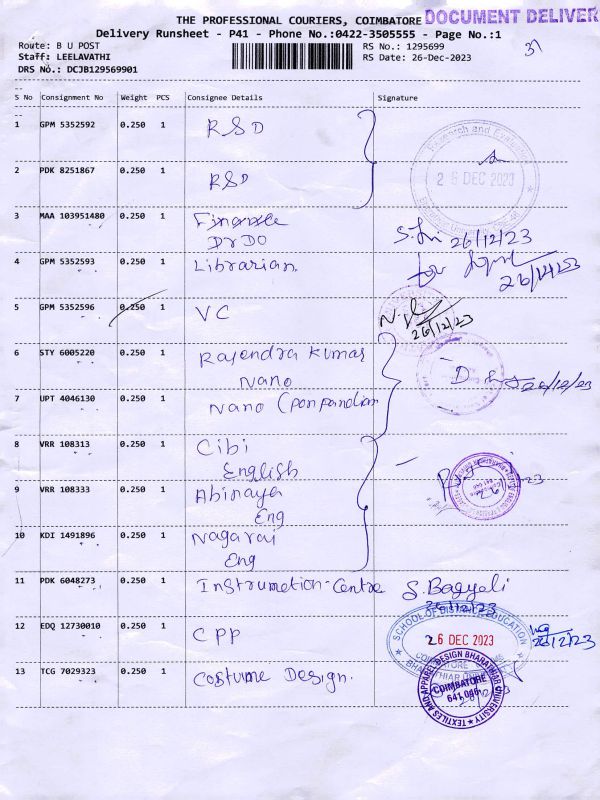 THE PROFESSIONAL COURIERS, COIMBATORE
DOCUMENT DELIVER
Delivery Runsheet - P41 - Phone No.:0422-3505555 - Page No.:1
Route: B U POST
RS No.: 1295699
Staff: LEELAVATHI
RS Date: 26-Dec-2023
DRS No.: DCJB129569901
S No Consignment No Weight PCS Consignee Details Signature
1 GPM 5352592 0.250 1 RSD
2 PDK 8251867 0.250 1 RSD
Research and
26 DEC 2023
3 MAA 103951480 0.250 1 Finance
DRDO
26/12/23
4 GPM 5352593 0.250 1 Librarian
26/12/23
5 GPM 5352596 0.250 1 VC
26/12/23
6 STY 6005220 0.250 1 Rajendra Kumar
Nano
26/12/23
7 UPT 4046130 0.250 1 Nano (Ponpandian
8 VRR 108313 0.250 1 Cibi
English
9 VRR 108333 0.250 1 Abinaya
Eng
10 KDI 1491896 0.250 1 Nagaraj
Eng
11 PDK 6048273 0.250 1 Instrumetion-Centre S. Bagyali
26/12/23
12 EDQ 12730010 0.250 1 CPP
SCHOOL OF DISTANCE EDUCATION
26 DEC 2023
26/12/23
13 TCG 7029323 0.250 1 Costume Design.
TEXTILES AND APPAREL DESIGN BHARATHIAR UNIVERSITY
COIMBATORE
641 046